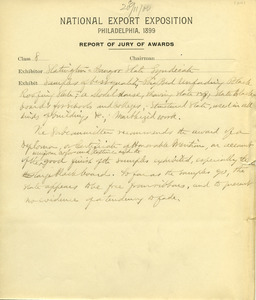 28/11/99
NATIONAL EXPORT EXPOSITION
PHILADELPHIA, 1899
REPORT OF JURY OF AWARDS
Class 8 Chairman
Exhibitor Slatington-Bangor Slate Syndicate
Exhibit Samples of Unfading Black
Roofing Slate
boards for schools and colleges, Structural Slate, used in all
kinds of buildings &c,
The Subcommittee recommends the award of a
Diploma, or Certificate of Honorable Mention, on account
of the good finish of the samples exhibited, especially the
large Black boards. So far as the samples go, the
slate appears to be free from and to present
no evidence of a tendency to fade.